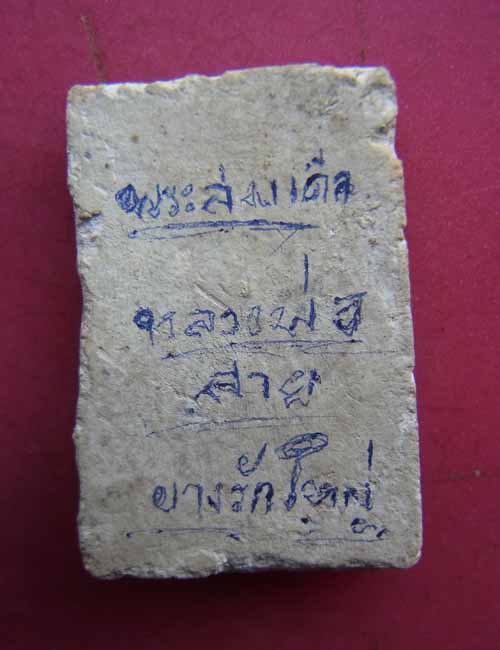 พระสมเด็จ
หลวงพ่อ
สาย
บางรักใหญ่